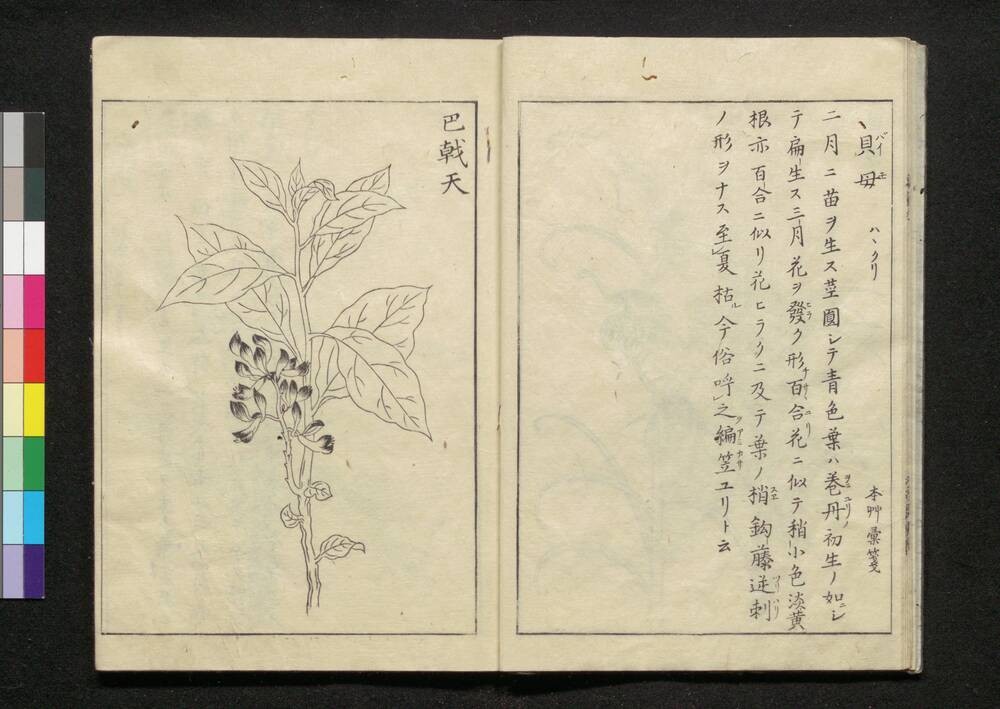 貝母 ハヽクリ 本艸彙箋
二月ニ苗ヲ生ス莖圓シテ青色葉ハ巻丹ノ初生ノ如ニシ
テ扁生ス三月花ヲ發ク形百合花ニ似テ稍小色淡黄
根亦百合ニ似リ花ヒラクニ及テ葉ノ梢鈎藤逆刺
ノ形ヲナス至夏枯ル今俗呼之編笠ユリト云
巴戟天